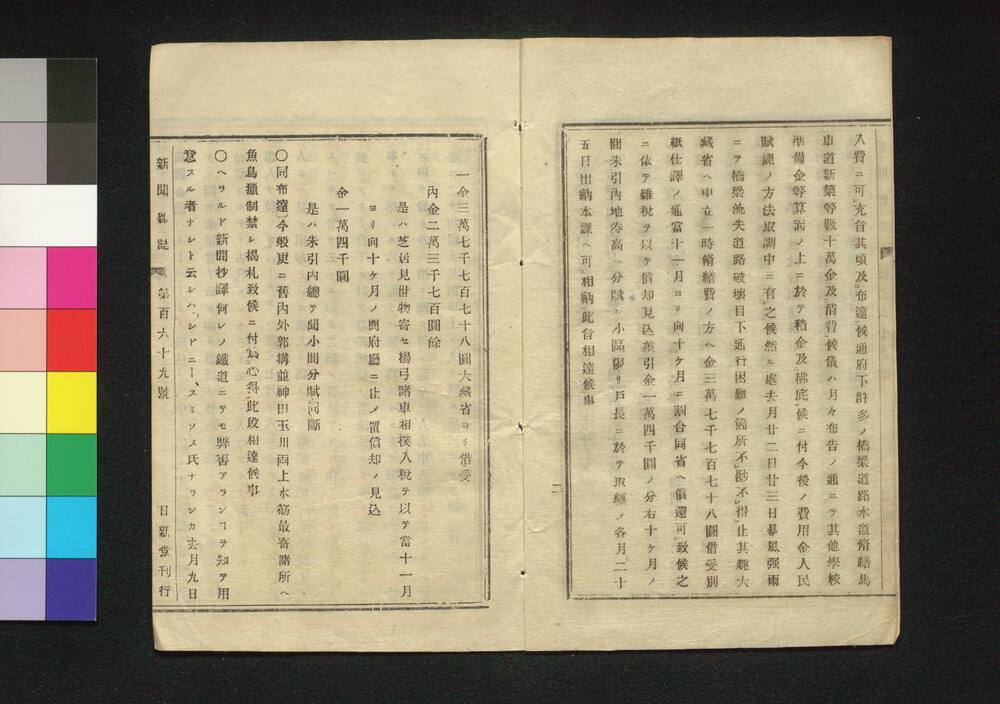 入費ニ可充旨其頃及布達候通府下許多ノ橋梁道路水道脩繕馬
車道新築等數十萬金及消費候儀ハ月々布告ノ通ニテ其他學校
準備金等算面ノ上ニ於テ積金及拂底候ニ付今後ノ費用金人民
賦課ノ方法取調中ニ有之候然ル處去月廿二日廿三日暴風强雨
ニテ橋梁流失道路破壞目下通行困難ノ箇所不尠不得止其趣大
藏省ヘ申立一時脩繕費ノ方ヘ金三萬七千七百七十八圓借受別
紙仕譯ノ通當十一月ヨリ向十ケ月ニ割合同省ヘ償還可致候之
ニ依テ雜稅ヲ以テ償却見込差引金一萬四千圓ノ分右十ケ月ノ
間朱引内地券高ヘ分賦シ小區限リ戸長ニ於テ取纒メ各月二十
五日出納本課ヘ可相納此旨相達候事
二
一金三萬七千七百七十八圓大藏省ヨリ借受
内金二萬三千七百圓餘
是ハ芝居見世物寄セ楊弓諸車相撲入稅ヲ以テ當十一月
ヨリ向十ケ月ノ間府廳ニ止メ置償却ノ見込
金一萬四千圓
是ハ朱引内總テ間小間分賦同斷
〇同布達〕今般更ニ舊内外郭搆並神田玉川兩上水筋最寄諸所ヘ
魚鳥獵制禁シ揭札致候ニ付爲心得此段相達候事
〇ヘラルド新聞抄譯何レノ鐵道ニテモ弊害アランコヲ知ヲ用
意スル者ナシト云シハ、シドニー、スミソス氏ナリシカ去月九日
新聞雜誌 第百六十九號 日新堂刊行